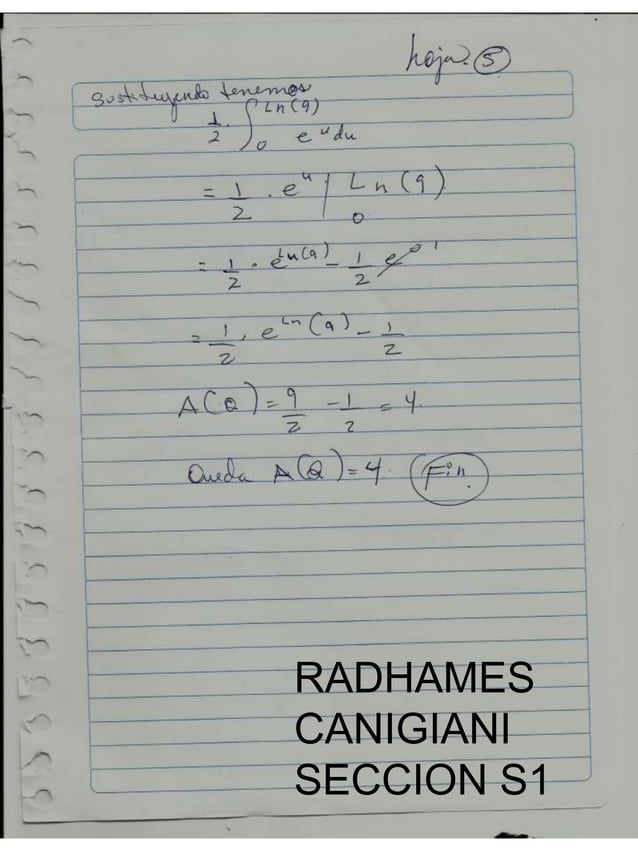 hoja. 5
sustituyendo tenemos
1/2 . ∫₀^Ln(9) e^u du
= 1/2 . e^u | Ln(9) 0
= 1/2 . e^Ln(9) - 1/2 e^0 1
= 1/2 . e^Ln(9) - 1/2
A(Q) = 9/2 - 1/2 = 4.
Queda A(Q) = 4. Fin.
RADHAMES
CANIGIANI
SECCION S1